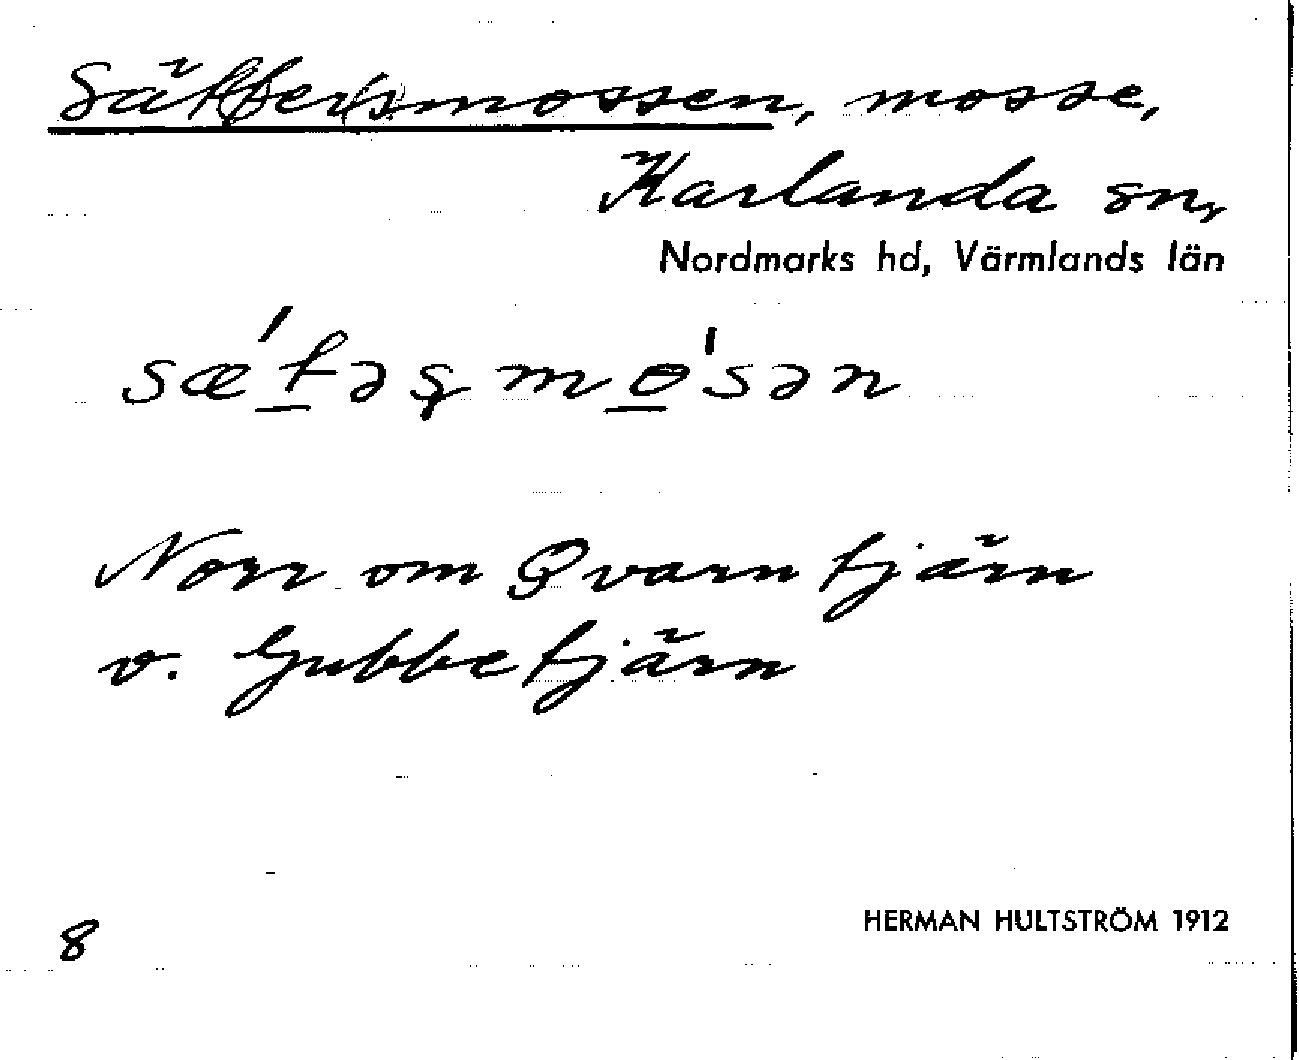 Sätter(s)mossen, mosse,
Karlanda sn,
Nordmarks hd, Värmlands län
sæ´təʂmo'sən
Norr om Qvarntjärn
v. Gubbetjärn
8
HERMAN HULTSTRÖM 1912